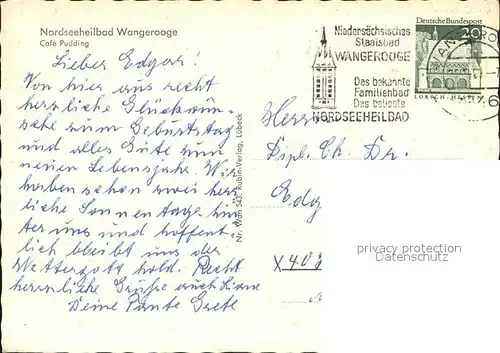 Nordseeheilbad Wangerooge
Café Pudding
Lieber Edgar!
Von hier aus recht
herrliche Glückwün-
sche zum Geburtstag
und alles Gute zum
neuen Lebensjahr. Wir
haben schon zwei herr
liche Sonnentage hin
ter uns und hoffent
lich bleibt uns der
Wettergott hold. Recht
herrliche Grüße auch Liane
Deine Tante Grete
Nr. Wan 543. Rubin-Verlag, Lübeck
Niedersächsisches
Staatsbad
WANGEROOGE
Das bekannte
Familienbad
Das beliebte
NORDSEEHEILBAD
Deutsche Bundespost
20
LORSCH/HESSEN
Herrn
Dipl. Ch. Dr.
Edg
X 403
privacy protection
Datenschutz